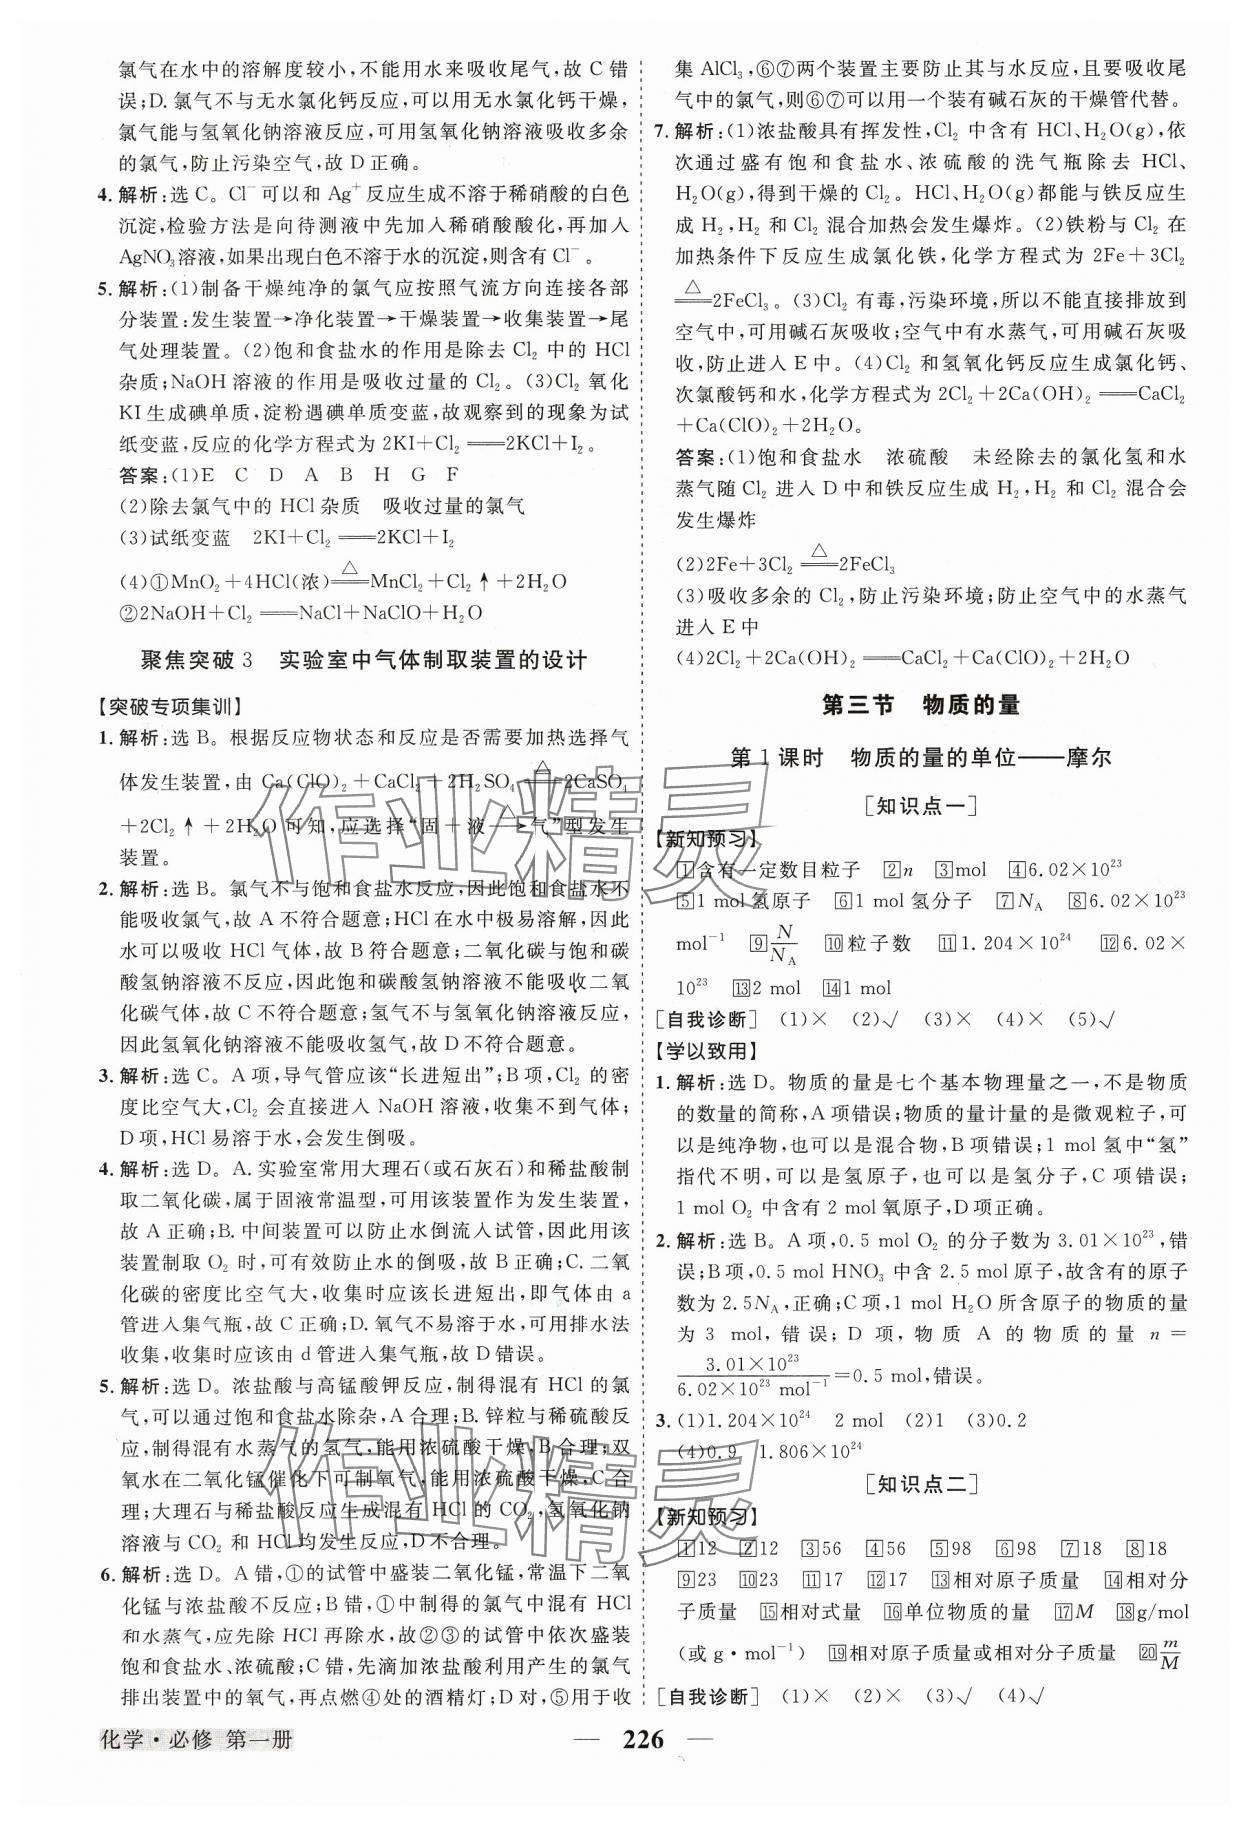 氯气在水中的溶解度较小,不能用水来吸收尾气,故 C 错
误;D. 氯气不与无水氯化钙反应,可以用无水氯化钙干燥,
氯气能与氢氧化钠溶液反应,可用氢氧化钠溶液吸收多余
的氯气,防止污染空气,故 D 正确。
4. 解析:选 C。Cl⁻ 可以和 Ag⁺ 反应生成不溶于稀硝酸的白色
沉淀,检验方法是向待测液中先加入稀硝酸酸化,再加入
AgNO₃溶液,如果出现白色不溶于水的沉淀,则含有 Cl⁻。
5. 解析:(1)制备干燥纯净的氯气应按照气流方向连接各部
分装置:发生装置→净化装置→干燥装置→收集装置→尾
气处理装置。(2)饱和食盐水的作用是除去 Cl₂ 中的 HCl
杂质;NaOH 溶液的作用是吸收过量的 Cl₂。(3)Cl₂ 氧化
KI 生成碘单质,淀粉遇碘单质变蓝,故观察到的现象为试
纸变蓝,反应的化学方程式为 2KI+Cl₂══2KCl+I₂。
答案:(1)E C D A B H G F
(2)除去氯气中的 HCl 杂质 吸收过量的氯气
(3)试纸变蓝 2KI+Cl₂══2KCl+I₂
(4)①MnO₂+4HCl(浓)══△MnCl₂+Cl₂↑+2H₂O
②2NaOH+Cl₂══NaCl+NaClO+H₂O
聚焦突破 3 实验室中气体制取装置的设计
【突破专项集训】
1. 解析:选 B。根据反应物状态和反应是否需要加热选择气
体发生装置,由 Ca(ClO)₂+CaCl₂+2H₂SO₄══△2CaSO₄
+2Cl₂↑+2H₂O 可知,应选择“固+液—△→气”型发生
装置。
2. 解析:选 B。氯气不与饱和食盐水反应,因此饱和食盐水不
能吸收氯气,故 A 不符合题意;HCl 在水中极易溶解,因此
水可以吸收 HCl 气体,故 B 符合题意;二氧化碳与饱和碳
酸氢钠溶液不反应,因此饱和碳酸氢钠溶液不能吸收二氧
化碳气体,故 C 不符合题意;氢气不与氢氧化钠溶液反应,
因此氢氧化钠溶液不能吸收氢气,故 D 不符合题意。
3. 解析:选 C。A 项,导气管应该“长进短出”;B 项,Cl₂ 的密
度比空气大,Cl₂ 会直接进入 NaOH 溶液,收集不到气体;
D 项,HCl 易溶于水,会发生倒吸。
4. 解析:选 D。A. 实验室常用大理石(或石灰石)和稀盐酸制
取二氧化碳,属于固液常温型,可用该装置作为发生装置,
故 A 正确;B. 中间装置可以防止水倒流入试管,因此用该
装置制取 O₂ 时,可有效防止水的倒吸,故 B 正确;C. 二氧
化碳的密度比空气大,收集时应该长进短出,即气体由 a
管进入集气瓶,故 C 正确;D. 氧气不易溶于水,可用排水法
收集,收集时应该由 d 管进入集气瓶,故 D 错误。
5. 解析:选 D。浓盐酸与高锰酸钾反应,制得混有 HCl 的氯
气,可以通过饱和食盐水除杂,A 合理;B. 锌粒与稀硫酸反
应,制得混有水蒸气的氢气,能用浓硫酸干燥,B 合理;双
氧水在二氧化锰催化下可制氧气,能用浓硫酸干燥,C 合
理;大理石与稀盐酸反应生成混有 HCl 的 CO₂,氢氧化钠
溶液与 CO₂ 和 HCl 均发生反应,D 不合理。
6. 解析:选 D。A 错,①的试管中盛装二氧化锰,常温下二氧
化锰与浓盐酸不反应;B 错,①中制得的氯气中混有 HCl
和水蒸气,应先除 HCl 再除水,故②③的试管中依次盛装
饱和食盐水、浓硫酸;C 错,先滴加浓盐酸利用产生的氯气
排出装置中的氧气,再点燃④处的酒精灯;D 对,⑤用于收
集 AlCl₃,⑥⑦两个装置主要防止其与水反应,且要吸收尾
气中的氯气,则⑥⑦可以用一个装有碱石灰的干燥管代替。
7. 解析:(1)浓盐酸具有挥发性,Cl₂ 中含有 HCl、H₂O(g),依
次通过盛有饱和食盐水、浓硫酸的洗气瓶除去 HCl、
H₂O(g),得到干燥的 Cl₂。HCl、H₂O(g)都能与铁反应生
成 H₂,H₂ 和 Cl₂ 混合加热会发生爆炸。(2)铁粉与 Cl₂ 在
加热条件下反应生成氯化铁,化学方程式为 2Fe+3Cl₂
══△2FeCl₃。(3)Cl₂ 有毒,污染环境,所以不能直接排放到
空气中,可用碱石灰吸收;空气中有水蒸气,可用碱石灰吸
收,防止进入 E 中。(4)Cl₂ 和氢氧化钙反应生成氯化钙、
次氯酸钙和水,化学方程式为 2Cl₂+2Ca(OH)₂══CaCl₂
+Ca(ClO)₂+2H₂O。
答案:(1)饱和食盐水 浓硫酸 未经除去的氯化氢和水
蒸气随 Cl₂ 进入 D 中和铁反应生成 H₂,H₂ 和 Cl₂ 混合会
发生爆炸
(2)2Fe+3Cl₂══△2FeCl₃
(3)吸收多余的 Cl₂,防止污染环境;防止空气中的水蒸气
进入 E 中
(4)2Cl₂+2Ca(OH)₂══CaCl₂+Ca(ClO)₂+2H₂O
第三节 物质的量
第 1 课时 物质的量的单位——摩尔
[知识点一]
【新知预习】
[1]含有一定数目粒子 [2]n [3]mol [4]6.02×10²³
[5]1 mol 氢原子 [6]1 mol 氢分子 [7]N_A [8]6.02×10²³
mol⁻¹ [9]N/N_A [10]粒子数 [11]1.204×10²⁴ [12]6.02×
10²³ [13]2 mol [14]1 mol
[自我诊断] (1)× (2)√ (3)× (4)× (5)√
【学以致用】
1. 解析:选 D。物质的量是七个基本物理量之一,不是物质
的数量的简称,A 项错误;物质的量计量的是微观粒子,可
以是纯净物,也可以是混合物,B 项错误;1 mol 氢中“氢”
指代不明,可以是氢原子,也可以是氢分子,C 项错误;
1 mol O₂ 中含有 2 mol 氧原子,D 项正确。
2. 解析:选 B。A 项,0.5 mol O₂ 的分子数为 3.01×10²³,错
误;B 项,0.5 mol HNO₃ 中含 2.5 mol 原子,故含有的原子
数为 2.5N_A,正确;C 项,1 mol H₂O 所含原子的物质的量
为 3 mol,错误;D 项,物质 A 的物质的量 n=
3.01×10²³/6.02×10²³ mol⁻¹=0.5 mol,错误。
3. (1)1.204×10²⁴ 2 mol (2)1 (3)0.2
(4)0.9 1.806×10²⁴
[知识点二]
【新知预习】
[1]12 [2]12 [3]56 [4]56 [5]98 [6]98 [7]18 [8]18
[9]23 [10]23 [11]17 [12]17 [13]相对原子质量 [14]相对分
子质量 [15]相对式量 [16]单位物质的量 [17]M [18]g/mol
(或 g·mol⁻¹) [19]相对原子质量或相对分子质量 [20]m/M
[自我诊断] (1)× (2)× (3)√ (4)√
化学·必修 第一册
— 226 —
作业精灵
作业精灵